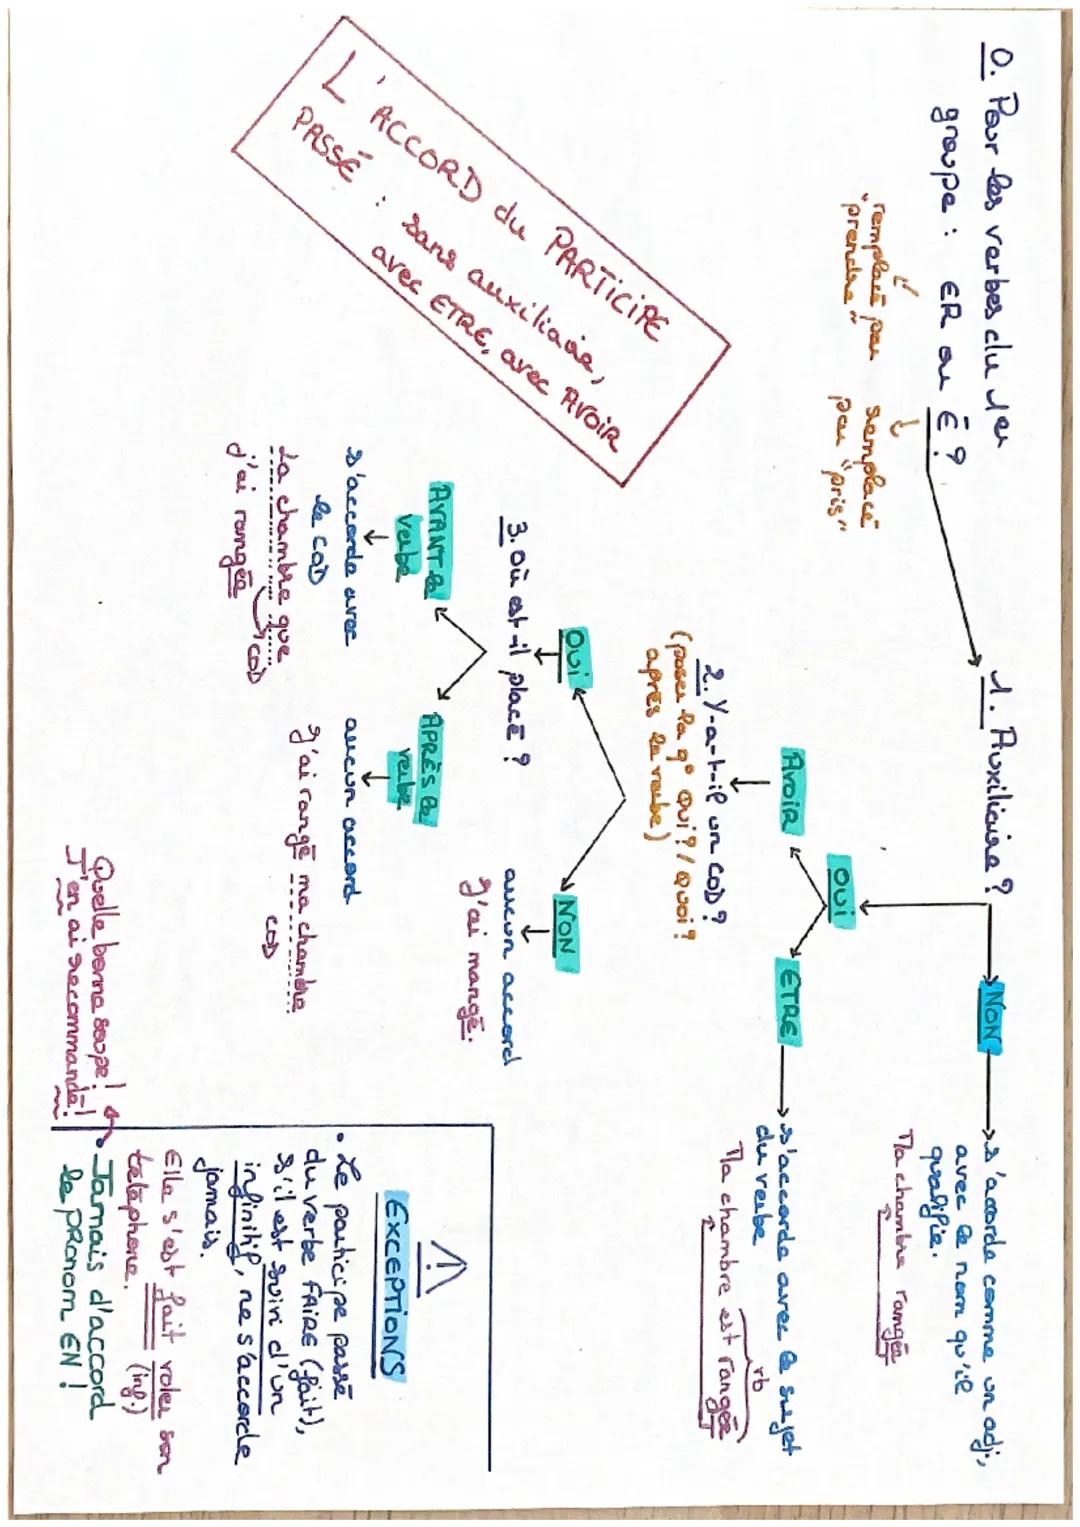 0. Pour les verbes du 1er
groupe : ER ou É ?
"remplacé par
prendre"
remplacé
par "pris"
L'ACCORD du PARTICIPE
PASSÉ : sans auxiliaire,
avec ETRE, avec AVOIR
1. Auxiliaire ?
NON
s'accorde comme un adj,
avec le nom qu'il
qualifie.
Ma chambre rangée
OUI
ETRE
s'accorde avec le sujet
du verbe
vb
Ma chambre est rangée
AVOIR
2. Y-a-t-il un COD ?
(poser la q° Qui ? / Quoi ?
après le verbe)
NON
aucun accord
J'ai mangé.
OUI
3. Où est-il placé ?
AVANT le
verbe
s'accorde avec
le COD
La chambre que
COD
j'ai rangée
APRÈS le
verbe
aucun accord
J'ai rangé ma chambre.
COD
EXCEPTIONS
• Le participe passé
du verbe FAIRE (fait),
s'il est suivi d'un
infinitif, ne s'accorde
jamais.
Elle s'est fait voler son
téléphone. (inf.)
• Jamais d'accord
le PRONOM EN !
Quelle bonne soupe !
J'en ai recommandé !